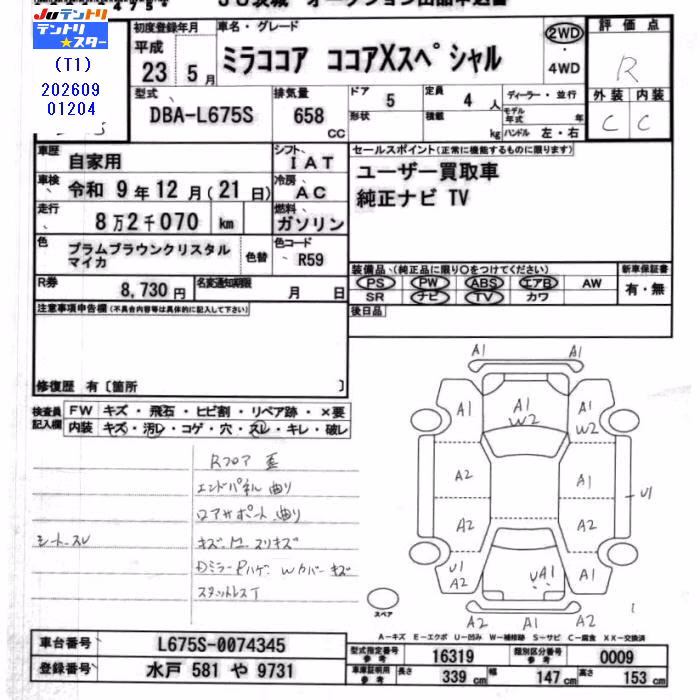 JU テントリ
テントリ★スター
(T1)
202609
01204
初度登録年月
平成
23 5月
車名・グレード
ミラココア ココアXスペシャル
2WD
・
4WD
評価点
R
外装 内装
C C
型式
DBA-L675S
排気量
658
CC
ドア 5
形状
定員 4 人
積載 kg
ディーラー・並行
モデル年式 年
ハンドル 左・右
車歴 自家用
シフト IAT
車検 令和 9年 12月(21日)
冷房 AC
走行 8万2千070 km
燃料 ガソリン
色 プラムブラウンクリスタル
マイカ
色替
色コード R59
R券 8,730円
名変通知期限 月 日
セールスポイント(正常に機能するものに限ります)
ユーザー買取車
純正ナビ TV
装備品、(純正品に限り○をつけてください)
新車保証書
PS PW ABS エアB AW
SR ナビ TV カワ
有・無
後日品
注意事項申告欄(不具合内容等は具体的に記入して下さい)
修復歴 有〔箇所 〕
検査員
記入欄
FW キズ・飛石・ヒビ割・リペア跡・×要
内装 キズ・汚レ・コゲ・穴・スレ・キレ・破レ
Rフロア 歪
エンドパネル 曲り
ロアサポート 曲り
シートスレ
スタットレスT
A1
A1 A1 W2 A1 W2
A2 A1
A2 A2 U1
U1 A2 UA1 A1
A2 A1 A2
スペア
A-キズ E-エクボ U-凹み W-補修跡 S-サビ C-腐食 XX-交換済
車台番号 L675S-0074345
登録番号 水戸 581 や 9731
型式指定番号 参考 16319
類別区分番号 参考 0009
車庫証明用 参考 長さ 339 cm 幅 147 cm 高さ 153 cm